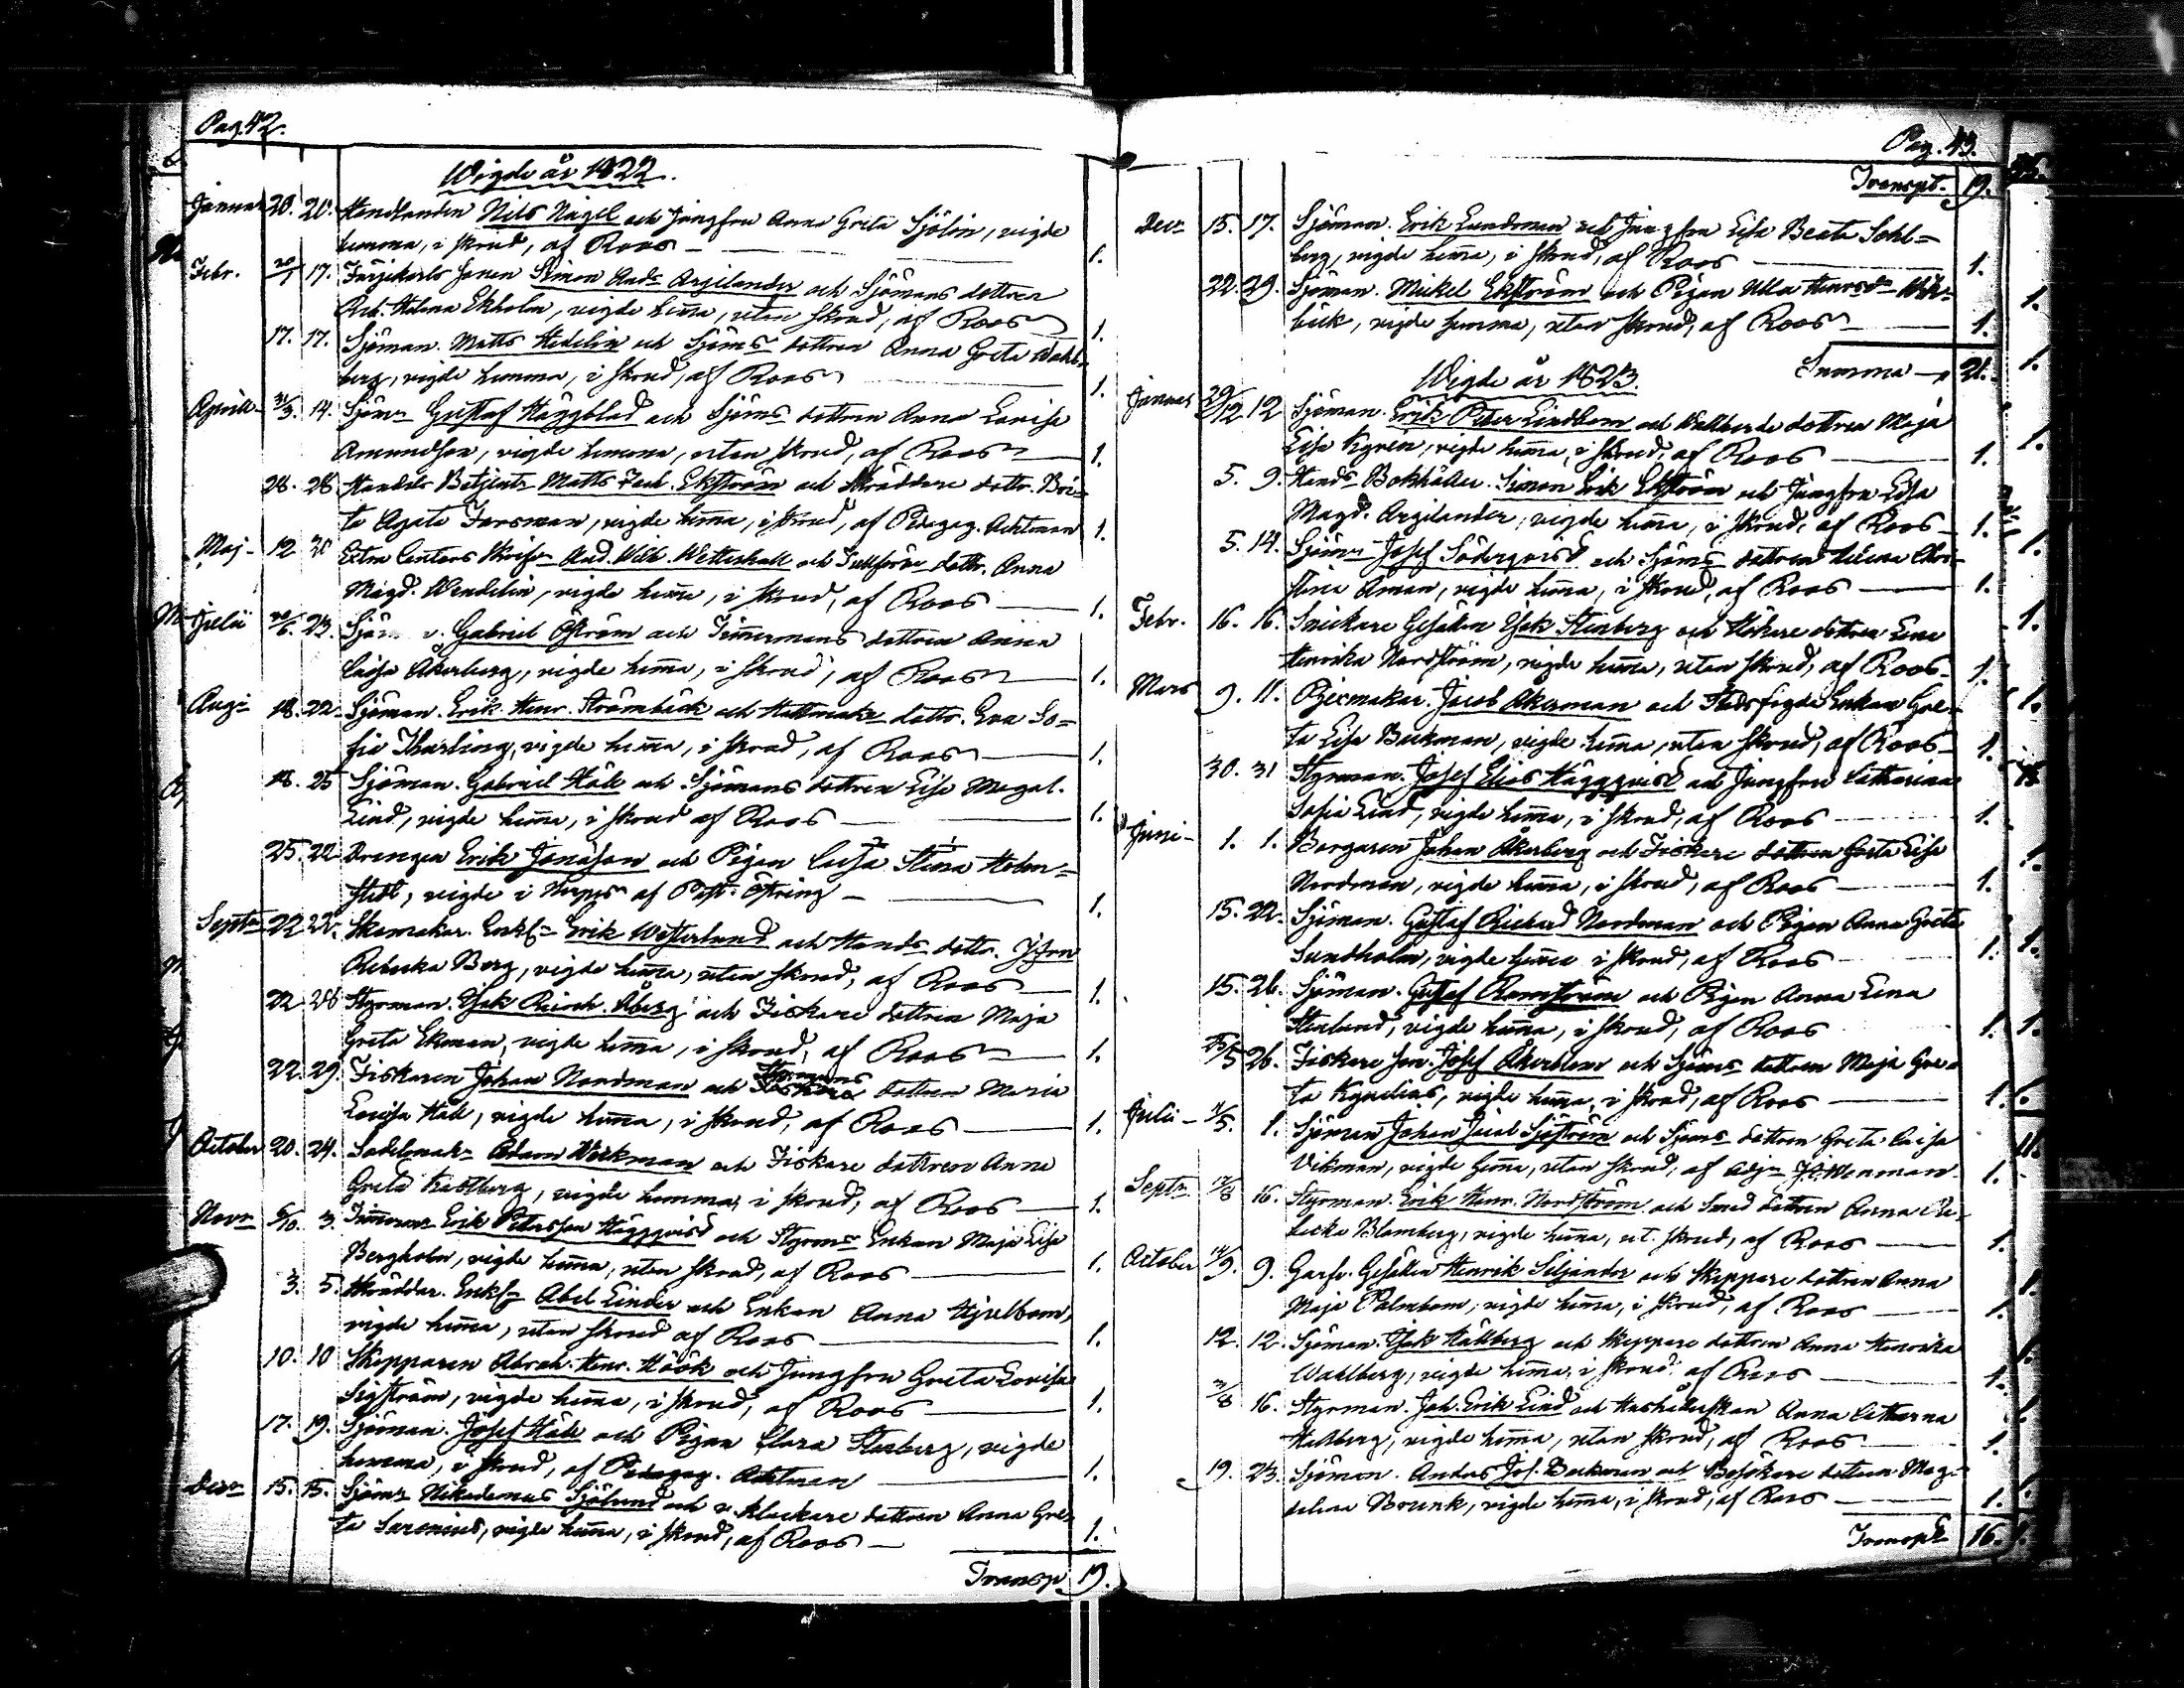 Pag. 42.
Wigde år 1822.
Januar 20. 20. Handlanden Nils Nagel och Jungfru Anna Greta Sjölin, vigde
hemma, i skrud, af Roos 1.
Febr. 20/1 17. Färjekarls Sonen Simon And. Argilander och Sjömans dottren
Helena Ekholm, vigde hema, utan skrud, af Roos 1.
17. 17. Sjöman. Matts Hedelin och Sjöms dottren Anna Greta Wahl-
berg, vigde hemma, i skrud, af Roos 1.
Aprill 31/3. 14. Sjöm Gustaf Häggblad och Sjöms dottren Anna Lovisa
Amundson, vigde hemma, utan skrud, af Roos 1.
28. 28 Handels Betjent Matts Zach. Ekström och Skräddare dottr. Bri-
ta Agata Forsman, vigde hema, i skrud, af Pedagog. Ahlman 1.
Maj 12 20 Extra Canters And. Wilh. Wetterhall och dottr. Anna
Magd. Wendelin, vigde hema, i skrud, af Roos 1.
Julii 23. Sjöm Gabriel Öström och Timermans dottren Anna
Caisa Åkerberg, vigde hema, i skrud, af Roos 1.
Aug 18. 22. Sjöman. Erik Henr. Strömbäck och Hattmak dottr. Eva So-
fia Tharling, vigde hema, i skrud, af Roos 1.
18. 25 Sjöman. Gabriel Hök och Sjömans dottren Lisa Magd.
Lind, vigde hema, i skrud af Roos 1.
25. 22 Drengen Erik Jonasson och Pigan Caisa Stina Holm-
stedt, vigde i Nerpes af Past. Östring 1.
Sept 22 22. Skomakar. Enkl Erik Westerlund och Hands dottr.
Rebecka Berg, vigde hema, utan skrud, af Roos 1.
22 28 Styrman. Isak Åberg och Fiskare dottren Maja
Greta Ekman, vigde hema, i skrud, af Roos 1.
22. 29. Fiskaren Johan Nordman och Styrmans dottren Maria
Lovisa Hök, vigde hema, i skrud, af Roos 1.
October 20. 24. Sadelmak Adam Workman och Fiskare dottren Anna
Greta Hallberg, vigde hemma, i skrud, af Roos 1.
Nov 6/10. 3. Erik Petersson Häggqvist och Styrm Enkan Maja Lisa
Bergholm, vigde hema, utan skrud, af Roos 1.
3. 5. Skräddar. Enkl Abel Linder och Enkan Anna Hjelbom,
vigde hema, utan skrud af Roos 1.
10. 10 Skepparen Abrah. Henr. Höök och Jungfru Greta Lovisa
Sigström, vigde hema, i skrud, af Roos 1.
17. 19. Sjöman. Josef Hök och Pigan Clara Stenberg, vigde
hemma, i skrud, af Pedagog. Ahlman 1.
Dec 15. 15. Sjöm Nikodemus Sjölund och v. klockare dottren Anna Gre-
ta Serenius, vigde hema, i skrud, af Roos 1.
Transp 19.
Pag. 43.
Transpt. 19.
Dec 15. 17. Sjöman. Erik Lundman och Jungfru Lisa Beata Sahl-
berg, vigde hema, i skrud, af Roos 1.
22. 29. Sjöman. Mickel Ekström och Pigan Ulla Henrsd
beck, vigde hemma, utan skrud, af Roos 1.
Summa 21.
Wigde år 1823.
Januar 29/12 12 Sjöman. Erik Peter Lindbom och dottren Maja
Lisa Kyrén, vigde hema, i skrud, af Roos 1.
5. 9. Hands Bokhållar. Simon Erik Ekström och Jungfru Lisa
Magd. Argilander, vigde hema, i skrud, af Roos 1.
5. 14. Sjöm Josef Söderqvist och Sjöms dottren Helena Chri-
stina Åman, vigde hema, i skrud, af Roos 1.
Febr. 16. 16. Snickare Gesällen Isak Stenberg och Hökare dottren Lena
Henrika Nordström, vigde hema, utan skrud, af Roos 1.
Mars 9. 11. Jacob Åkerman och Stadsfogde Enkan Gre-
ta Lisa Beckman, vigde hema, utan skrud, af Roos 1.
30. 31 Styrman. Josef Elias Häggqvist och Jungfru Catharina
Sofia Lind, vigde hema, i skrud, af Roos 1.
Juni 1. 1. Borgaren Johan Åkerberg och Fiskare dottren Greta Lisa
Nordman, vigde hema, i skrud, af Roos 1.
15. 22. Sjöman. Gustaf Rickard Nordman och Pigan Anna Greta
Sundholm, vigde hema i skrud, af Roos 1.
15. 26. Sjöman. Gustaf Ramström och Pigan Anna Lena
Stenlund, vigde hema, i skrud, af Roos 1.
25/5 26. Fiskare Son. Josef Åkerblom och Sjöms dottren Maja Gre-
ta Kyndlias, vigde hema, i skrud, af Roos 1.
Julii 1. Sjöman Johan Jacob Sjöström och Sjöms dottren Greta Caisa
Vikman, vigde hema, utan skrud, af Adj. J. Wenman 1.
Sept 16. Styrman. Erik Henr. Nordström och Smed dottren Anna Re-
becka Blomberg, vigde hema, ut. skrud, af Roos 1.
October 14/9. 9. Garfv. Gesällen Henrik Siljander och Skeppare dottren Anna
Maja Palmbom, vigde hema, i skrud, af Roos 1.
12. 12. Sjöman. Isak Hällberg och Skeppare dottren Anna Henrika
Wahlberg, vigde hema, i skrud, af Roos 1.
3/8 16. Styrman. Joh. Erik Lind och Hushållerskan Anna Catharina
Hallberg, vigde hema, utan skrud, af Roos 1.
19. 23. Sjöman. Anders Jos. Backman och Besökare dottren Mag-
dalena Brunk, vigde hema, i skrud, af Roos 1.
Transpt 16.